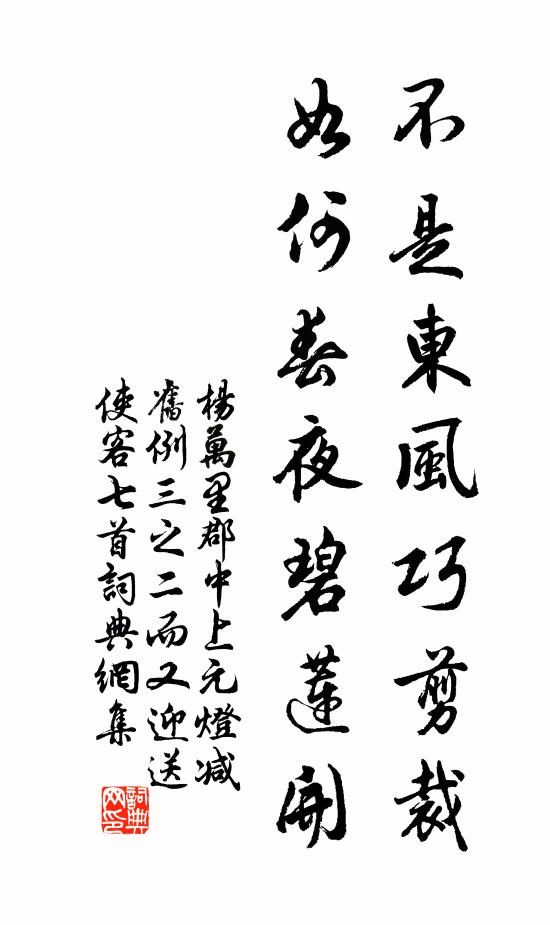 不是東風巧剪裁
如何春夜碧蓮開
楊萬里郡中上元燈减
舊例三之二而又迎送
使客七首詞典網集
詞典网印